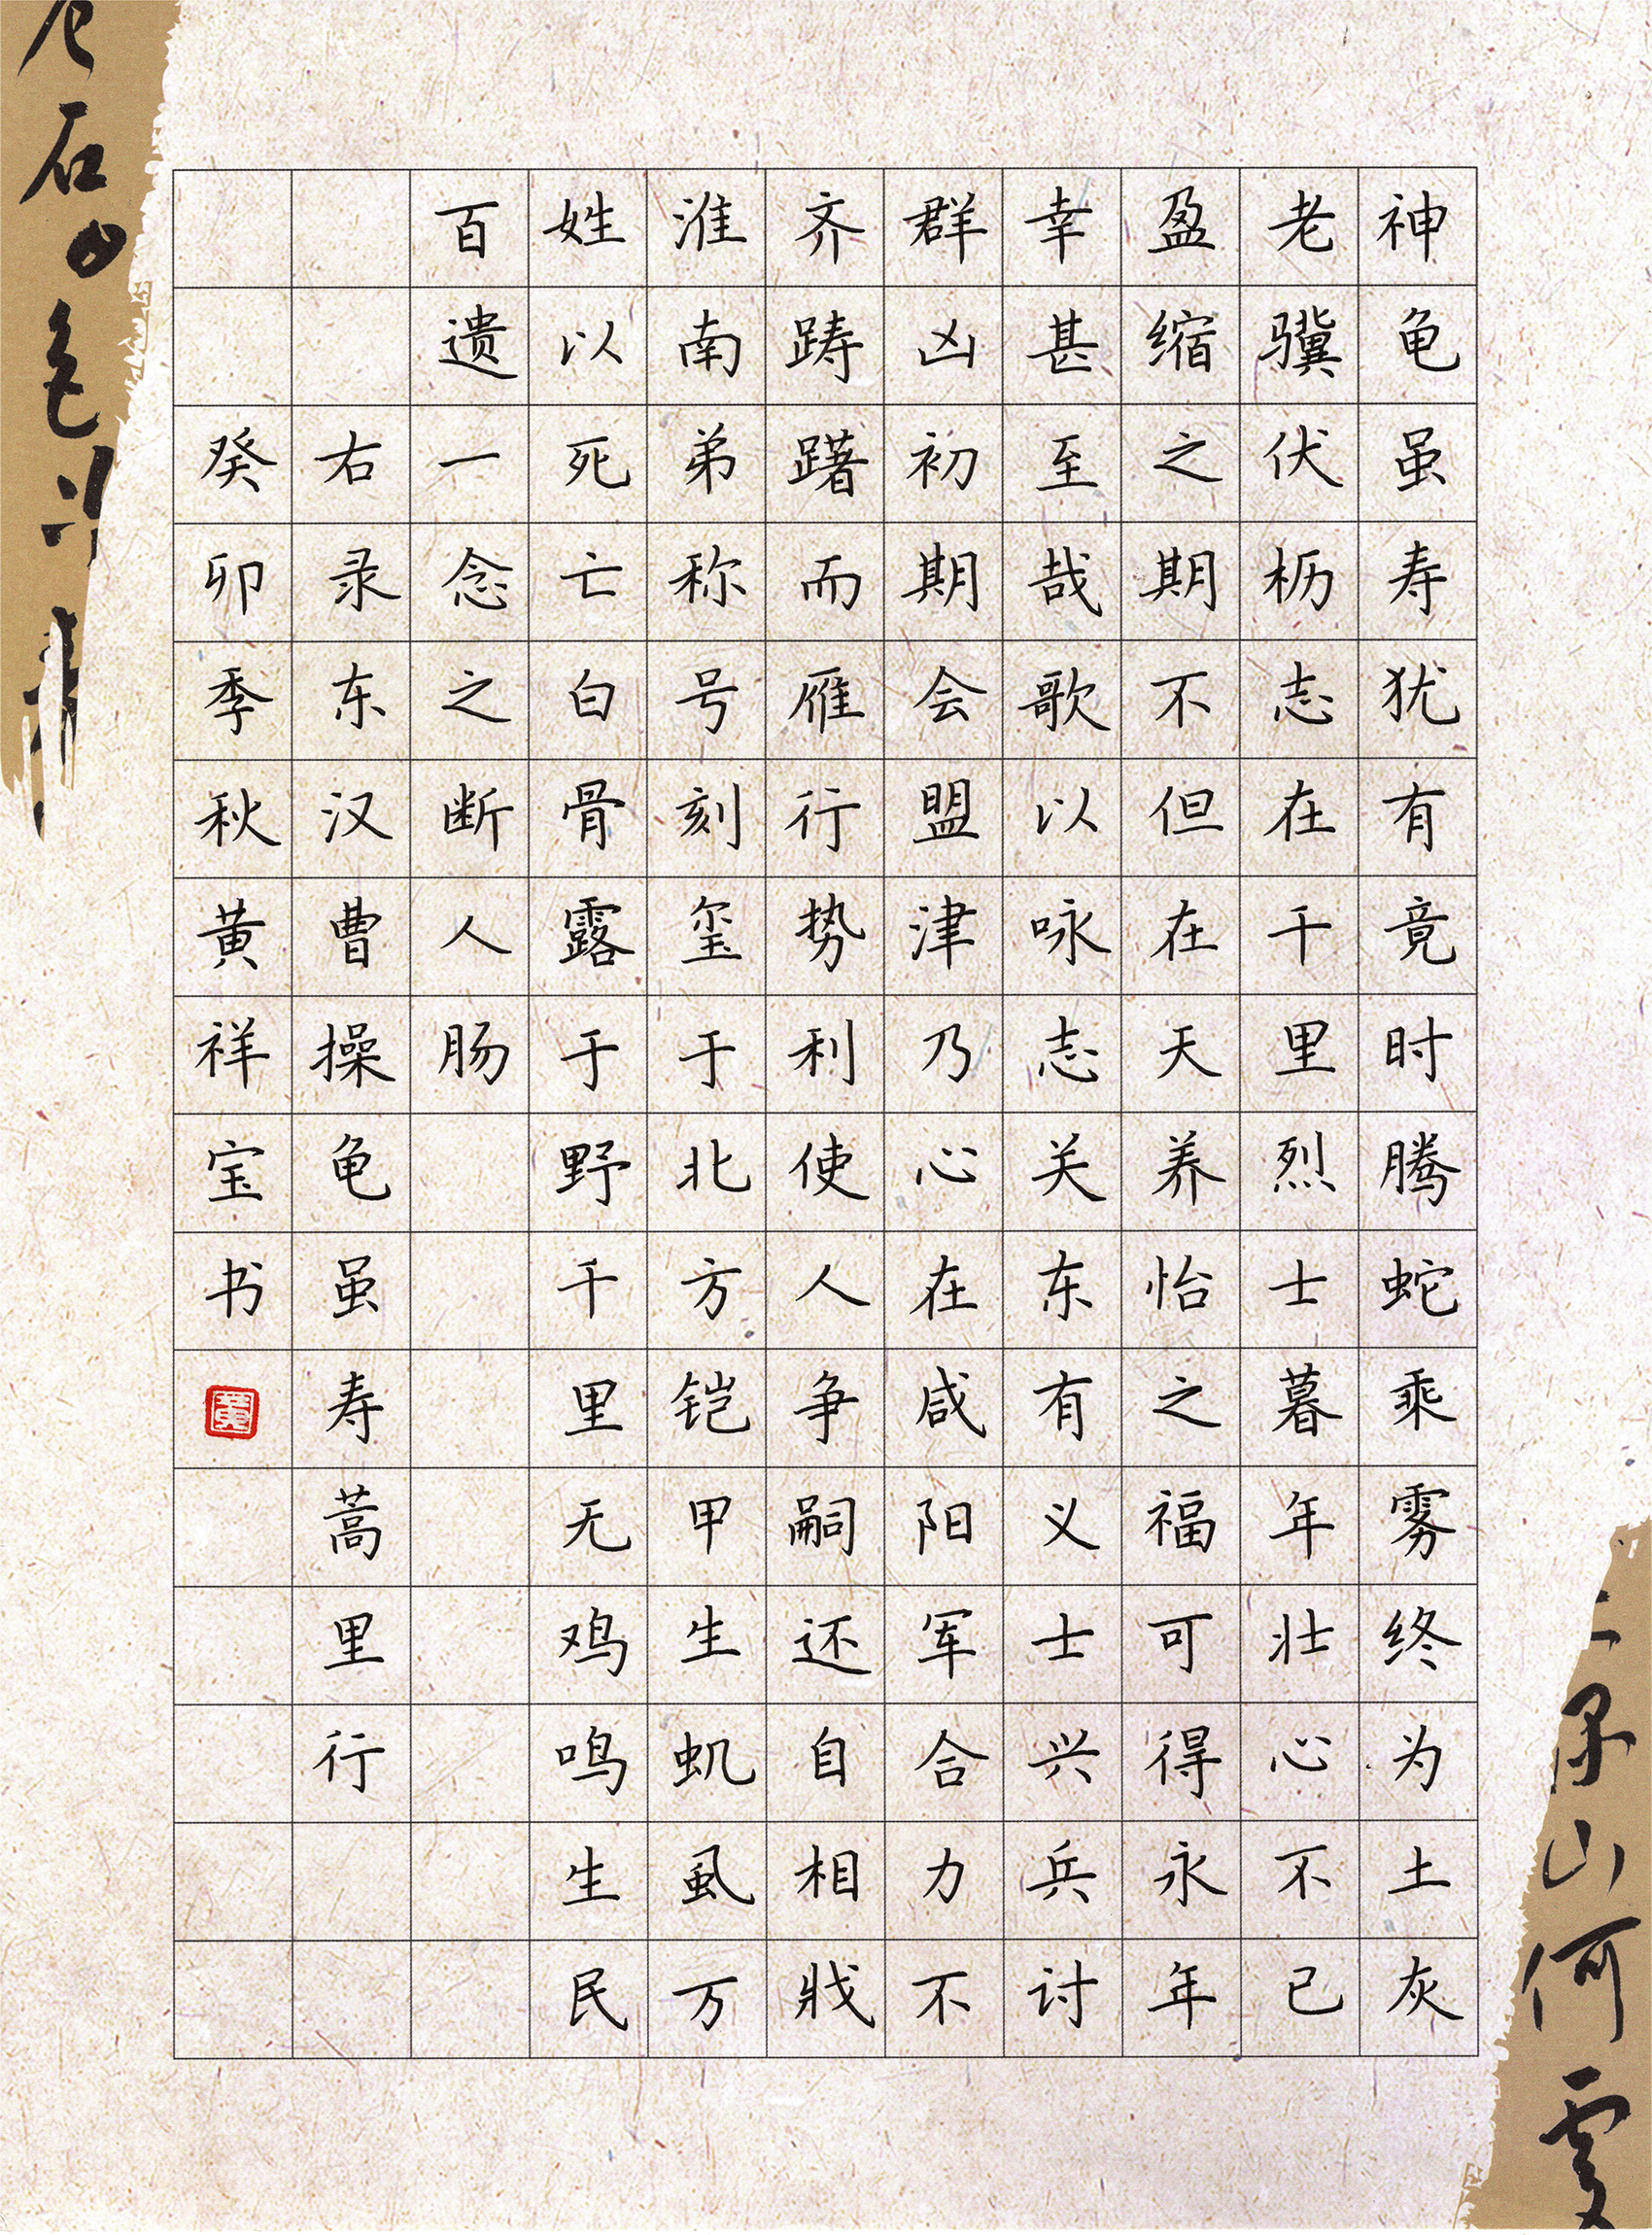 神龟虽寿犹有竟时腾蛇乘雾终为土灰
老骥伏枥志在千里烈士暮年壮心不已
盈缩之期不但在天养怡之福可得永年
幸甚至哉歌以咏志关东有义士兴兵讨
群凶初期会盟津乃心在咸阳军合力不
齐踌躇而雁行势利使人争嗣还自相戕
淮南弟称号刻玺于北方铠甲生虮虱万
姓以死亡白骨露于野千里无鸡鸣生民
百遗一念之断人肠
右录东汉曹操龟虽寿蒿里行
癸卯季秋黄祥宝书
黄
石
山何